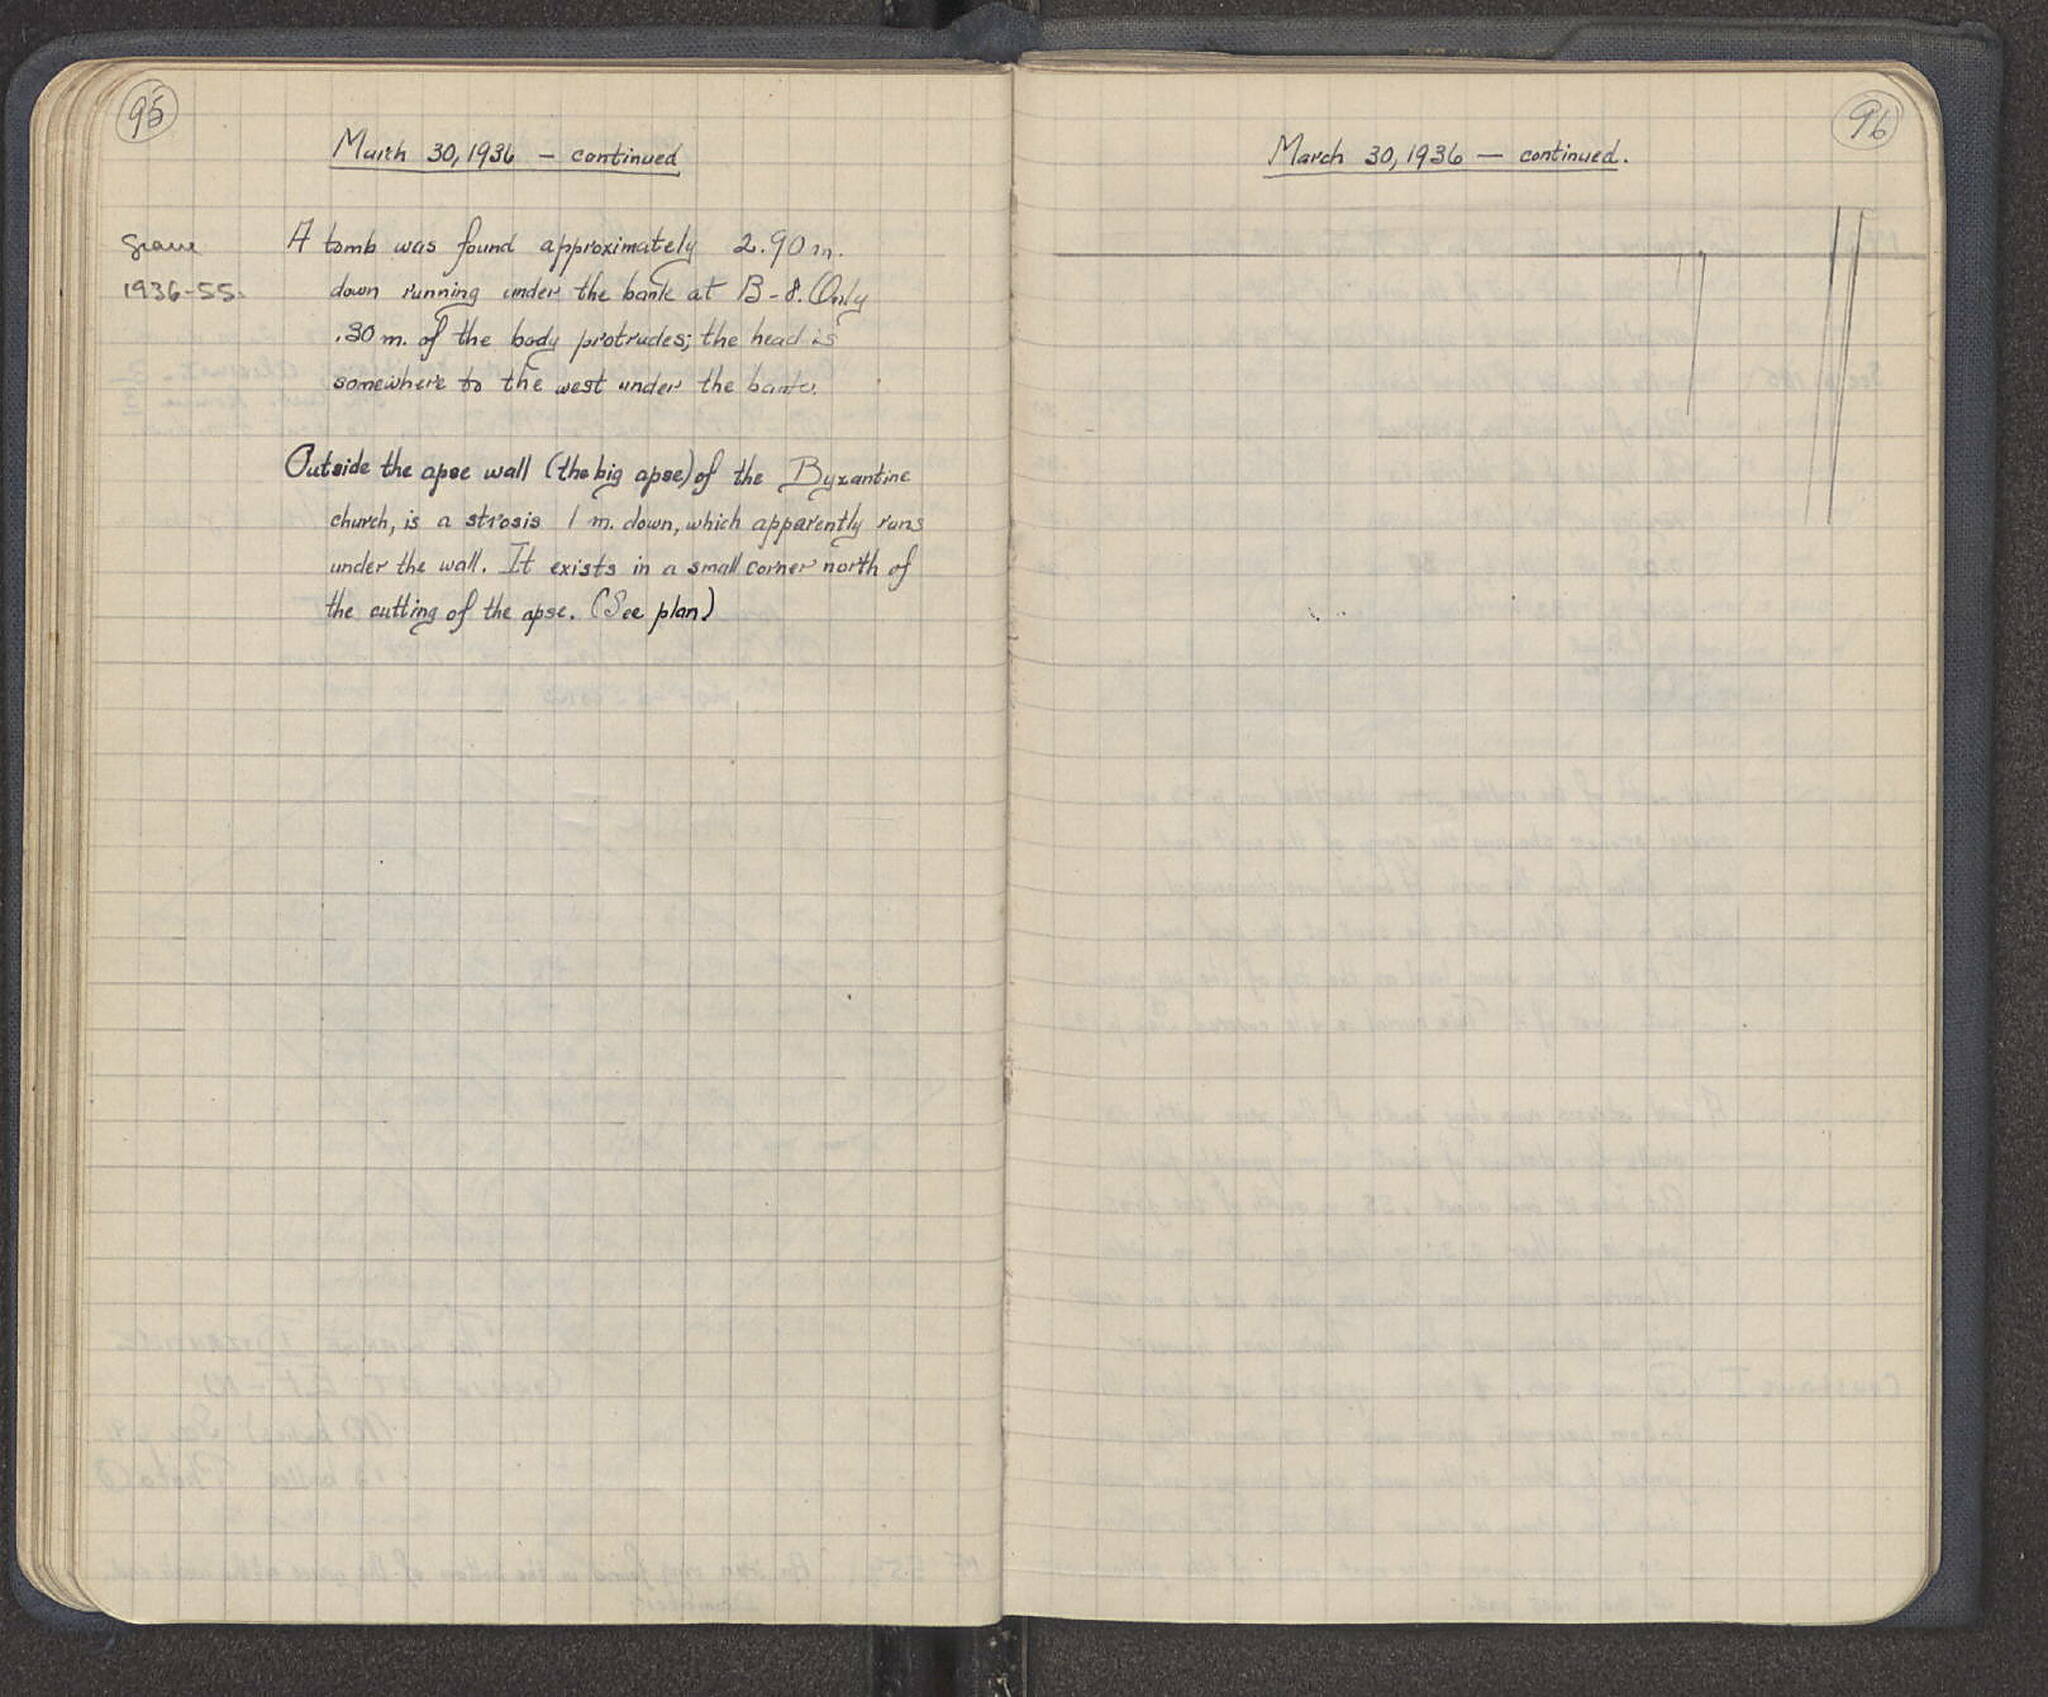 95
March 30, 1936 — continued
Grave
1936-55.
A tomb was found approximately 2.90 m.
down running under the bank at B-8. Only
.30 m. of the body protrudes; the head is
somewhere to the west under the bank.
Outside the apse wall (the big apse) of the Byzantine
church, is a strosis 1 m. down, which apparently runs
under the wall. It exists in a small corner north of
the cutting of the apse. (See plan)
96
March 30, 1936 — continued.